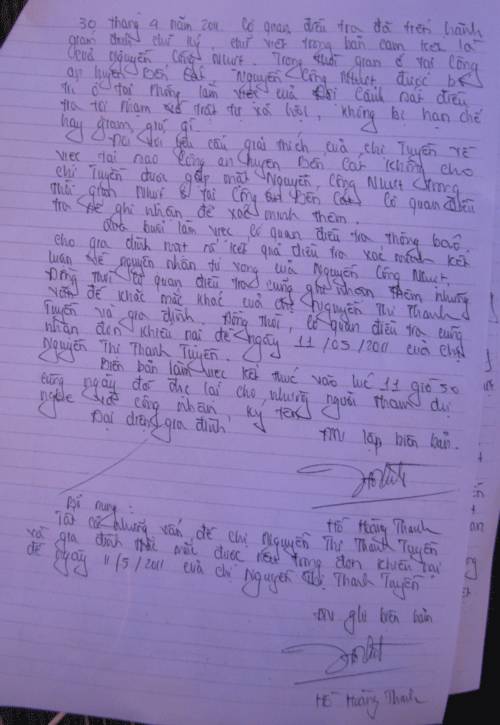 30 tháng 4 năm 2011. Cơ quan điều tra đã tiến hành
giám định chữ ký, chữ viết trong bản cam kết là
của Nguyễn Công Nhựt. Trong thời gian ở tại Công
an huyện Bến Cát Nguyễn Công Nhựt được bố
trí ở tại Phòng làm việc của Đội Cảnh sát điều
tra tội phạm về trật tự xã hội, không bị hạn chế
hay giam, giữ gì.
Đối với yêu cầu giải thích của chị Tuyền về
việc tại sao Công an huyện Bến Cát không cho
chị Tuyền được gặp mặt Nguyễn Công Nhựt trong
thời gian Nhựt ở tại Công an Bến Cát. Cơ quan điều
tra sẽ ghi nhận để xác minh thêm.
Qua buổi làm việc cơ quan điều tra thông báo
cho gia đình một số kết quả điều tra xác minh kết
luận về nguyên nhân tử vong của Nguyễn Công Nhựt.
Đồng thời cơ quan điều tra cũng ghi nhận thêm những
vấn đề khác mắc khác của chị Nguyễn Thị Thanh
Tuyền và gia đình. Đồng thời, cơ quan điều tra cũng
nhận đơn khiếu nại đề ngày 11/05/2011 của chị
Nguyễn Thị Thanh Tuyền.
Biên bản làm việc kết thúc vào lúc 11 giờ 50
cùng ngày đọc lại cho những người tham dự
nghe và công nhận, ký tên
Đại diện gia đình
ĐTV lập biên bản.
Hồ Hoàng Thanh
Bổ sung:
Tất cả những vấn đề chị Nguyễn Thị Thanh Tuyền
và gia đình thắc mắc được nêu trong đơn khiếu nại
đề ngày 11/5/2011 của chị Nguyễn Thị Thanh Tuyền
ĐTV ghi biên bản
Hồ Hoàng Thanh